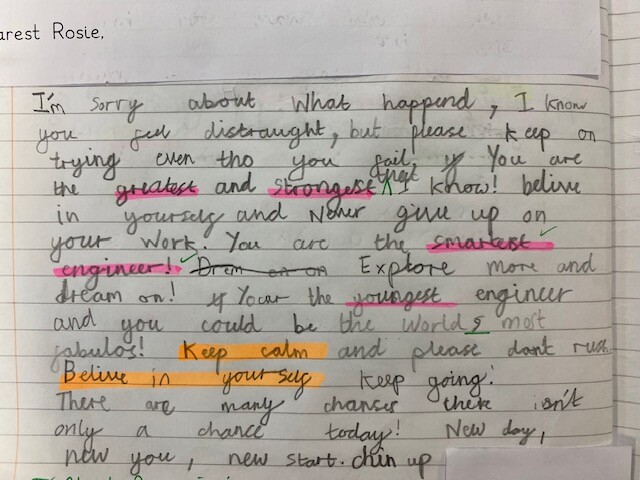 arest Rosie,
I'm sorry about what happend, I know
you feel distraught, but please keep on
trying even tho you fail. You are
the greatest and strongest that I know! belive
in yourself and Never give up on
your work. You are the smartest
engineer! Drem on on Explore more and
dream on! Your the youngest engineer
and you could be the worlds most
fabulos! Keep calm and please dont rush
Belive in yourself keep going!
There are many chanses there isn't
only a chance today! New day,
new you, new start. chin up